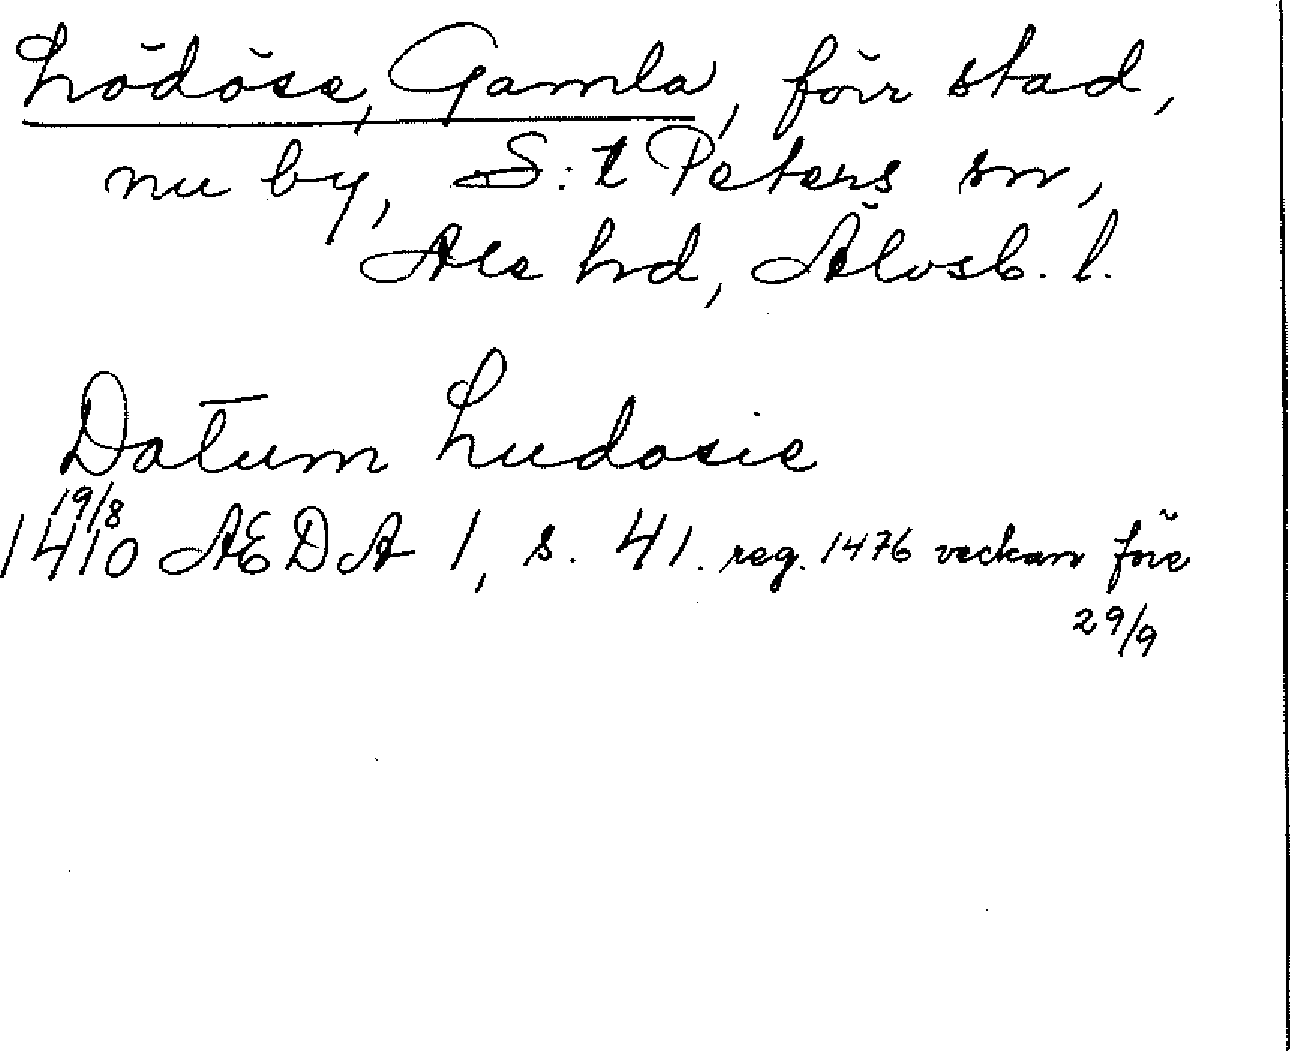 Lödöse, Gamla, förr stad,
nu by, S:t Peters sn,
Ale hd, Älvsb. l.
Datum Ludosie
19/8
1410 AEDA 1, s. 41. reg. 1476 veckan före
29/9